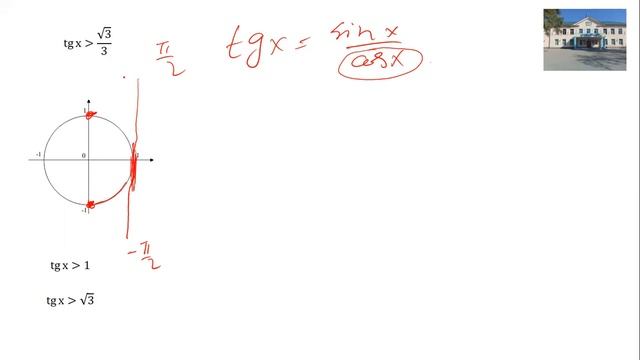 tg x > √3/3
π/2
tgx = sinx/cosx
1
-1 0 1
-1
-π/2
tg x > 1
tg x > √3